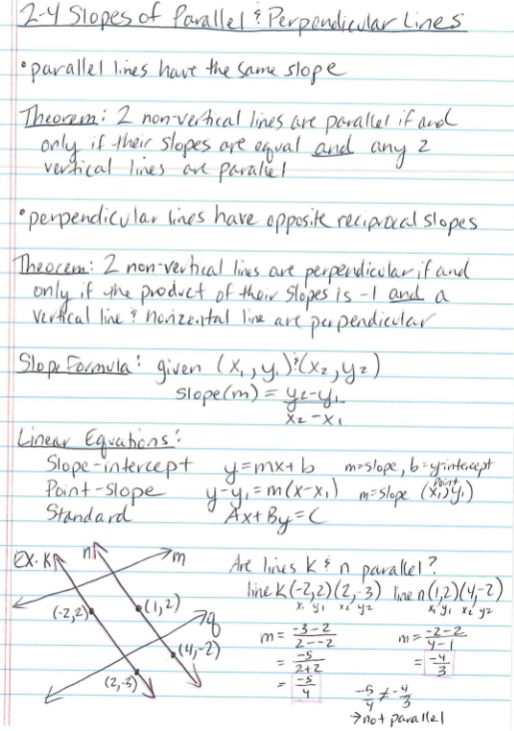 2-4 Slopes of Parallel & Perpendicular Lines
• parallel lines have the same slope
Theorem: 2 non-vertical lines are parallel if and
only if their slopes are equal and any 2
vertical lines are parallel
• perpendicular lines have opposite reciprocal slopes
Theorem: 2 non-vertical lines are perpendicular if and
only if the product of their slopes is -1 and a
vertical line & horizontal line are perpendicular
Slope Formula: given (x₁, y₁) & (x₂, y₂)
slope(m) = y₂-y₁
x₂-x₁
Linear Equations:
Slope-intercept y=mx+b m=slope, b=y-intercept
Point-slope y-y₁=m(x-x₁) m=slope point (x₁,y₁)
Standard Ax+By=C
Ex. k n m
q
(-2,2) (1,2)
(4,-2)
(2,-3)
Are lines k & n parallel?
line k (-2,2)(2,-3) line n (1,2)(4,-2)
x₁ y₁ x₂ y₂ x₁ y₁ x₂ y₂
m= -3-2 m= -2-2
2--2 4-1
= -5 = -4
2+2 3
= -5
4
-5 ≠ -4
4 3
→ not parallel